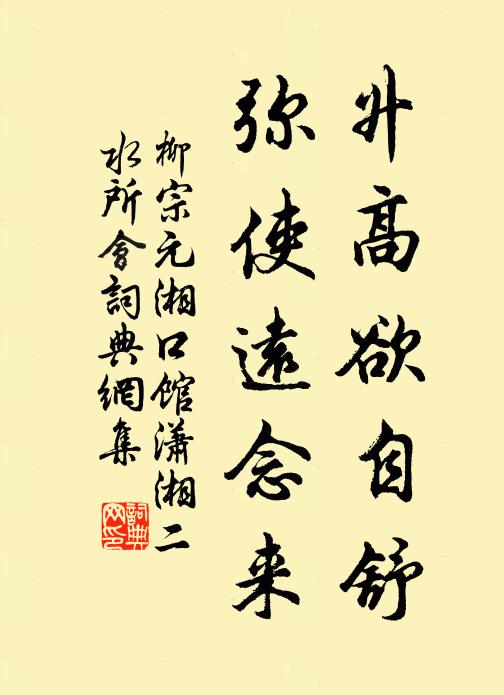 升高欲自舒
弥使遠念来
柳宗元湘口館瀟湘二
水所會詞典網集
詞典
网印